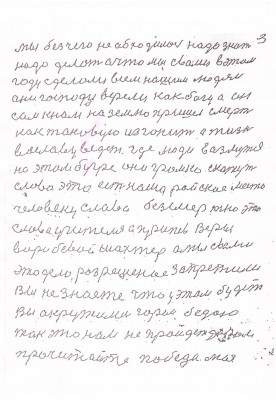 3
мы без чего не обходимся надо знат
надо делат а что мы с вами в этом
году сделоли всем нашим людям
они господу верели как богу а он
сам к нам на землю пришел смерт
как таковую изгонит а жизн
введет где люди возмутся
на этом бугре они громко скажут
слова это ест наша райское место
человеку слава безсмертю это
слова учителя
воробевой шахтер а мы с вами
это дело розрешоное запретили
Вы не знаете что у этом будит
Вы окружили город бедою
как это нам не пройдет даром
прочитайте победа моя